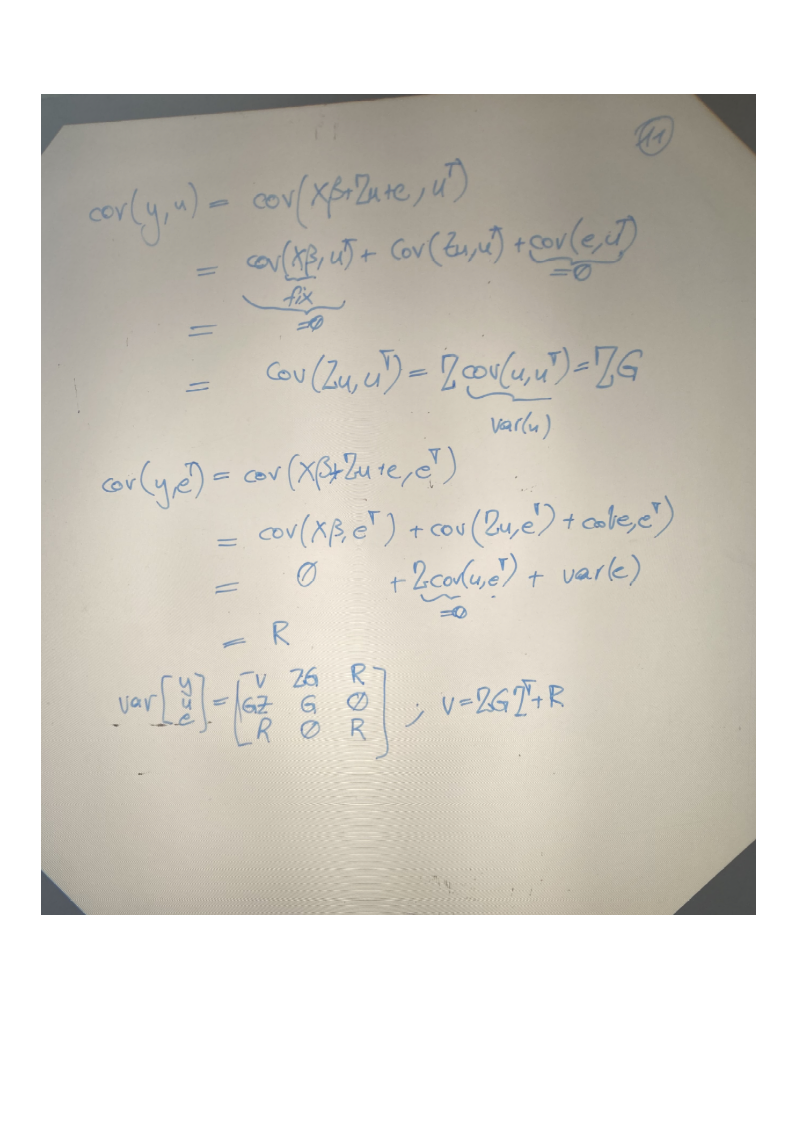 11
cov(y,u) = cov(Xβ+Zu+e, uᵀ)
= cov(Xβ, uᵀ) + Cov(Zu, uᵀ) + cov(e, uᵀ)
fix =∅
= =∅
= Cov(Zu, uᵀ) = Z cov(u, uᵀ) = ZG
var(u)
cov(y,eᵀ) = cov(Xβ+Zu+e, eᵀ)
= cov(Xβ, eᵀ) + cov(Zu, eᵀ) + cov(e, eᵀ)
= ∅ + Z cov(u, eᵀ) + var(e)
=∅
= R
y V ZG R
var[u] = [GZ G ∅] ; V = ZGZᵀ+R
e R ∅ R